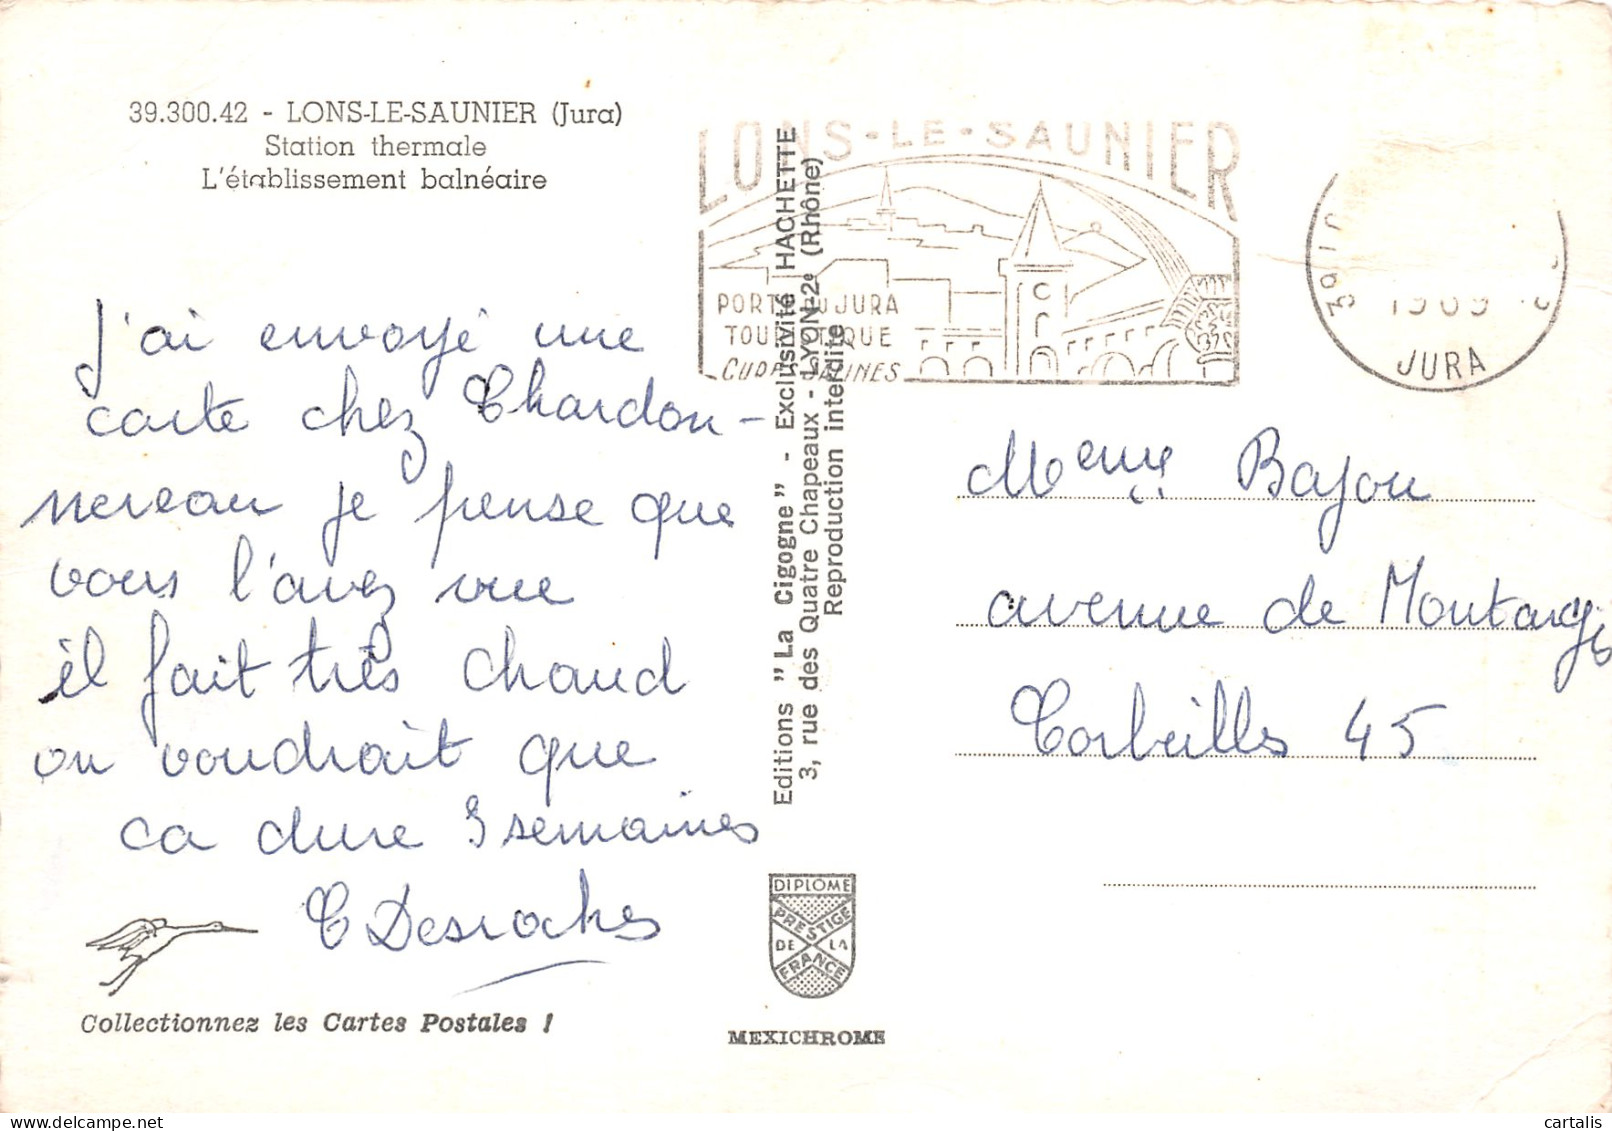 39.300.42 - LONS-LE-SAUNIER (Jura)
Station thermale
L'établissement balnéaire
J'ai envoyé une
carte chez Chardon-
nereau je pense que
vous l'avez vue
il fait très chaud
on voudrait que
ca dure 3 semaines
C Desroches
Collectionnez les Cartes Postales !
Editions "La Cigogne" - Exclusivité HACHETTE
3, rue des Quatre Chapeaux - LYON-2e (Rhône)
Reproduction interdite
DIPLOME
PRESTIGE
DE LA
FRANCE
MEXICHROME
LONS-LE-SAUNIER
PORTE DU JURA
TOURISTIQUE
CURES SALINES
39
1969
JURA
Bajou
avenue de Montargis
Corbeilles 45
cartalis
delcampe.net